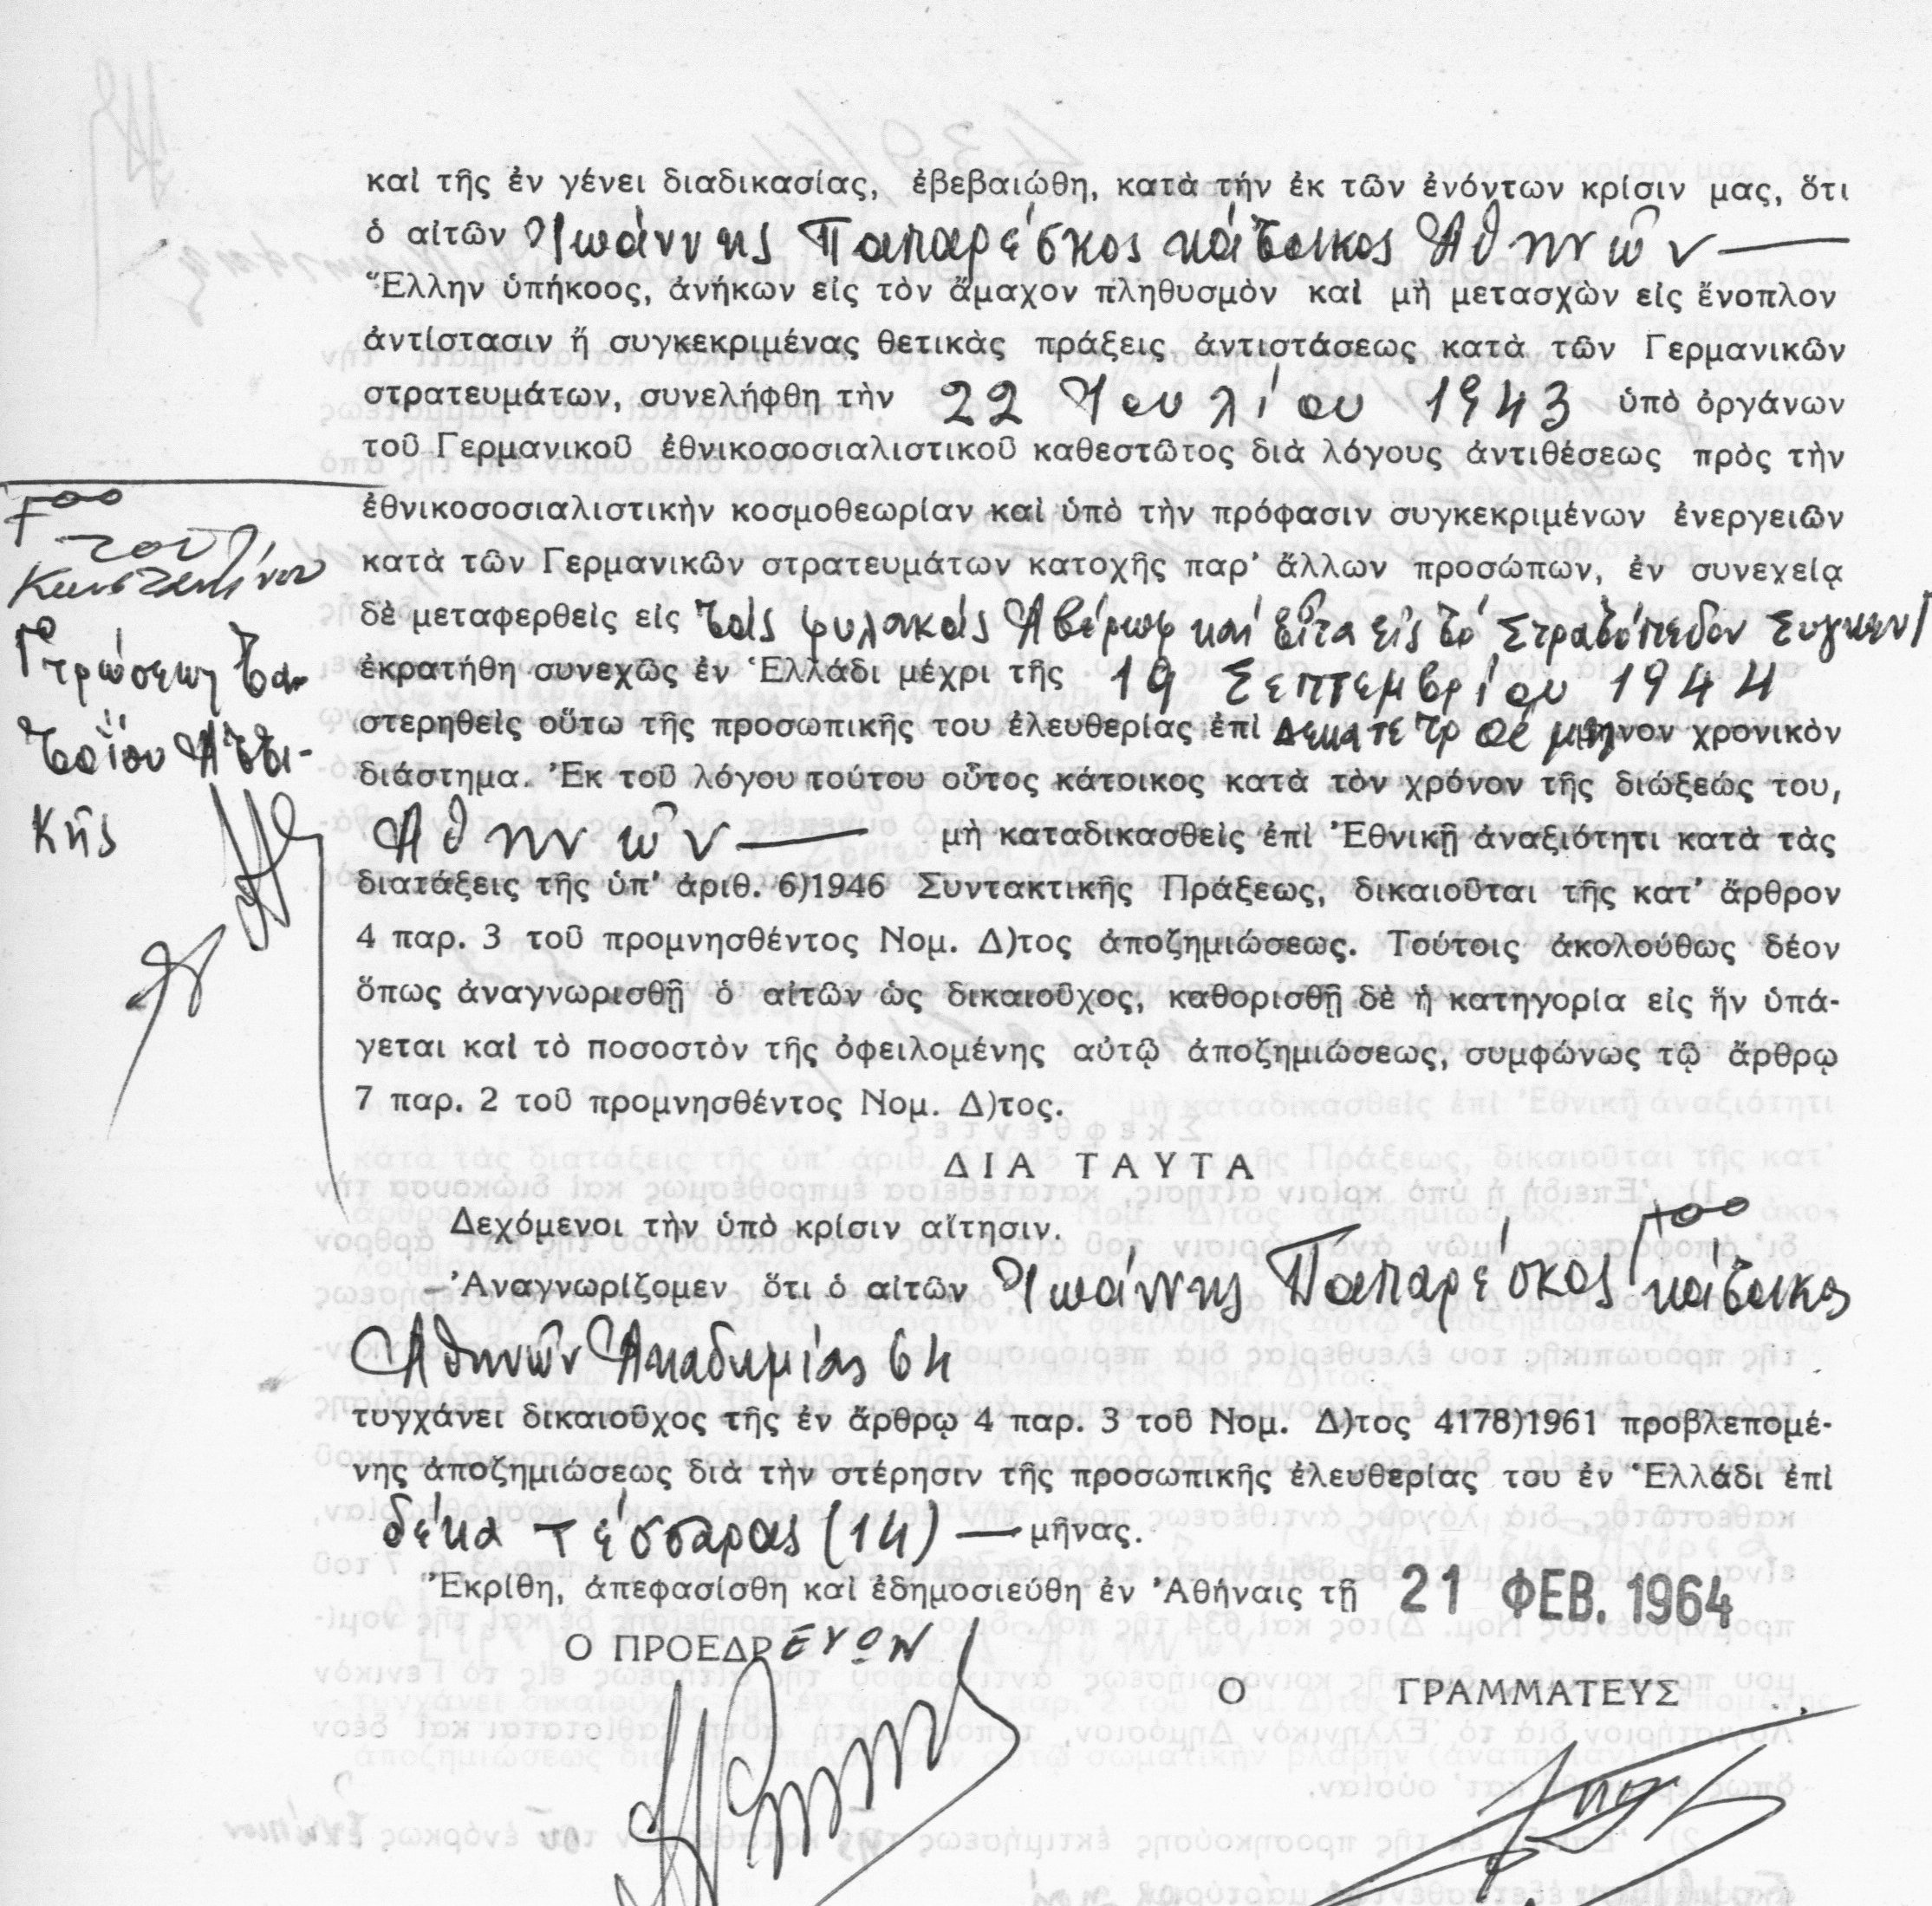 καὶ τῆς ἐν γένει διαδικασίας, ἐβεβαιώθη, κατὰ τὴν ἐκ τῶν ἐνόντων κρίσιν μας, ὅτι
ὁ αἰτῶν Ἰωάννης Παπαρέσκος κάτοικος Ἀθηνῶν —
Ἕλλην ὑπήκοος, ἀνήκων εἰς τὸν ἄμαχον πληθυσμὸν καὶ μὴ μετασχὼν εἰς ἔνοπλον
ἀντίστασιν ἤ συγκεκριμένας θετικὰς πράξεις ἀντιστάσεως κατὰ τῶν Γερμανικῶν
στρατευμάτων, συνελήφθη τὴν 22 Ἰουλίου 1943 ὑπὸ ὀργάνων
τοῦ Γερμανικοῦ ἐθνικοσοσιαλιστικοῦ καθεστῶτος διὰ λόγους ἀντιθέσεως πρὸς τὴν
ἐθνικοσοσιαλιστικὴν κοσμοθεωρίαν καὶ ὑπὸ τὴν πρόφασιν συγκεκριμένων ἐνεργειῶν
κατὰ τῶν Γερμανικῶν στρατευμάτων κατοχῆς παρ' ἄλλων προσώπων, ἐν συνεχείᾳ
δὲ μεταφερθεὶς εἰς τὰς φυλακάς Ἀβέρωφ καί εἶτα εἰς τό Στρατόπεδον Συγκεν
ἐκρατήθη συνεχῶς ἐν Ἑλλάδι μέχρι τῆς 19 Σεπτεμβρίου 1944
στερηθεὶς οὕτω τῆς προσωπικῆς του ἐλευθερίας ἐπὶ δεκατετράμηνον χρονικὸν
διάστημα. Ἐκ τοῦ λόγου τούτου οὗτος κάτοικος κατὰ τὸν χρόνον τῆς διώξεώς του,
Ἀθηνῶν — μὴ καταδικασθεὶς ἐπὶ Ἐθνικῇ ἀναξιότητι κατὰ τὰς
διατάξεις τῆς ὑπ' ἀριθ. 6)1946 Συντακτικῆς Πράξεως, δικαιοῦται τῆς κατ' ἄρθρον
4 παρ. 3 τοῦ προμνησθέντος Νομ. Δ)τος ἀποζημιώσεως. Τούτοις ἀκολούθως δέον
ὅπως ἀναγνωρισθῇ ὁ αἰτῶν ὡς δικαιοῦχος, καθορισθῇ δὲ ἡ κατηγορία εἰς ἥν ὑπά-
γεται καὶ τὸ ποσοστὸν τῆς ὀφειλομένης αὐτῷ ἀποζημιώσεως, συμφώνως τῷ ἄρθρῳ
7 παρ. 2 τοῦ προμνησθέντος Νομ. Δ)τος.
τοῦ
Κωνσταντίνου
τρώσεως Χα-
ϊδαρίου Ἀττι-
κῆς
ΔΙΑ ΤΑΥΤΑ
Δεχόμενοι τὴν ὑπὸ κρίσιν αἴτησιν.
—Ἀναγνωρίζομεν ὅτι ὁ αἰτῶν Ἰωάννης Παπαρέσκος κάτοικος
Ἀθηνῶν Ἀκαδημίας 64
τυγχάνει δικαιοῦχος τῆς ἐν ἄρθρῳ 4 παρ. 3 τοῦ Νομ. Δ)τος 4178)1961 προβλεπομέ-
νης ἀποζημιώσεως διὰ τὴν στέρησιν τῆς προσωπικῆς ἐλευθερίας του ἐν Ἑλλάδι ἐπὶ
δέκα τέσσαρας (14) — μῆνας.
Ἐκρίθη, ἀπεφασίσθη καὶ ἐδημοσιεύθη ἐν Ἀθήναις τῇ 21 ΦΕΒ. 1964
Ο ΠΡΟΕΔΡΕΥΩΝ
Ο ΓΡΑΜΜΑΤΕΥΣ